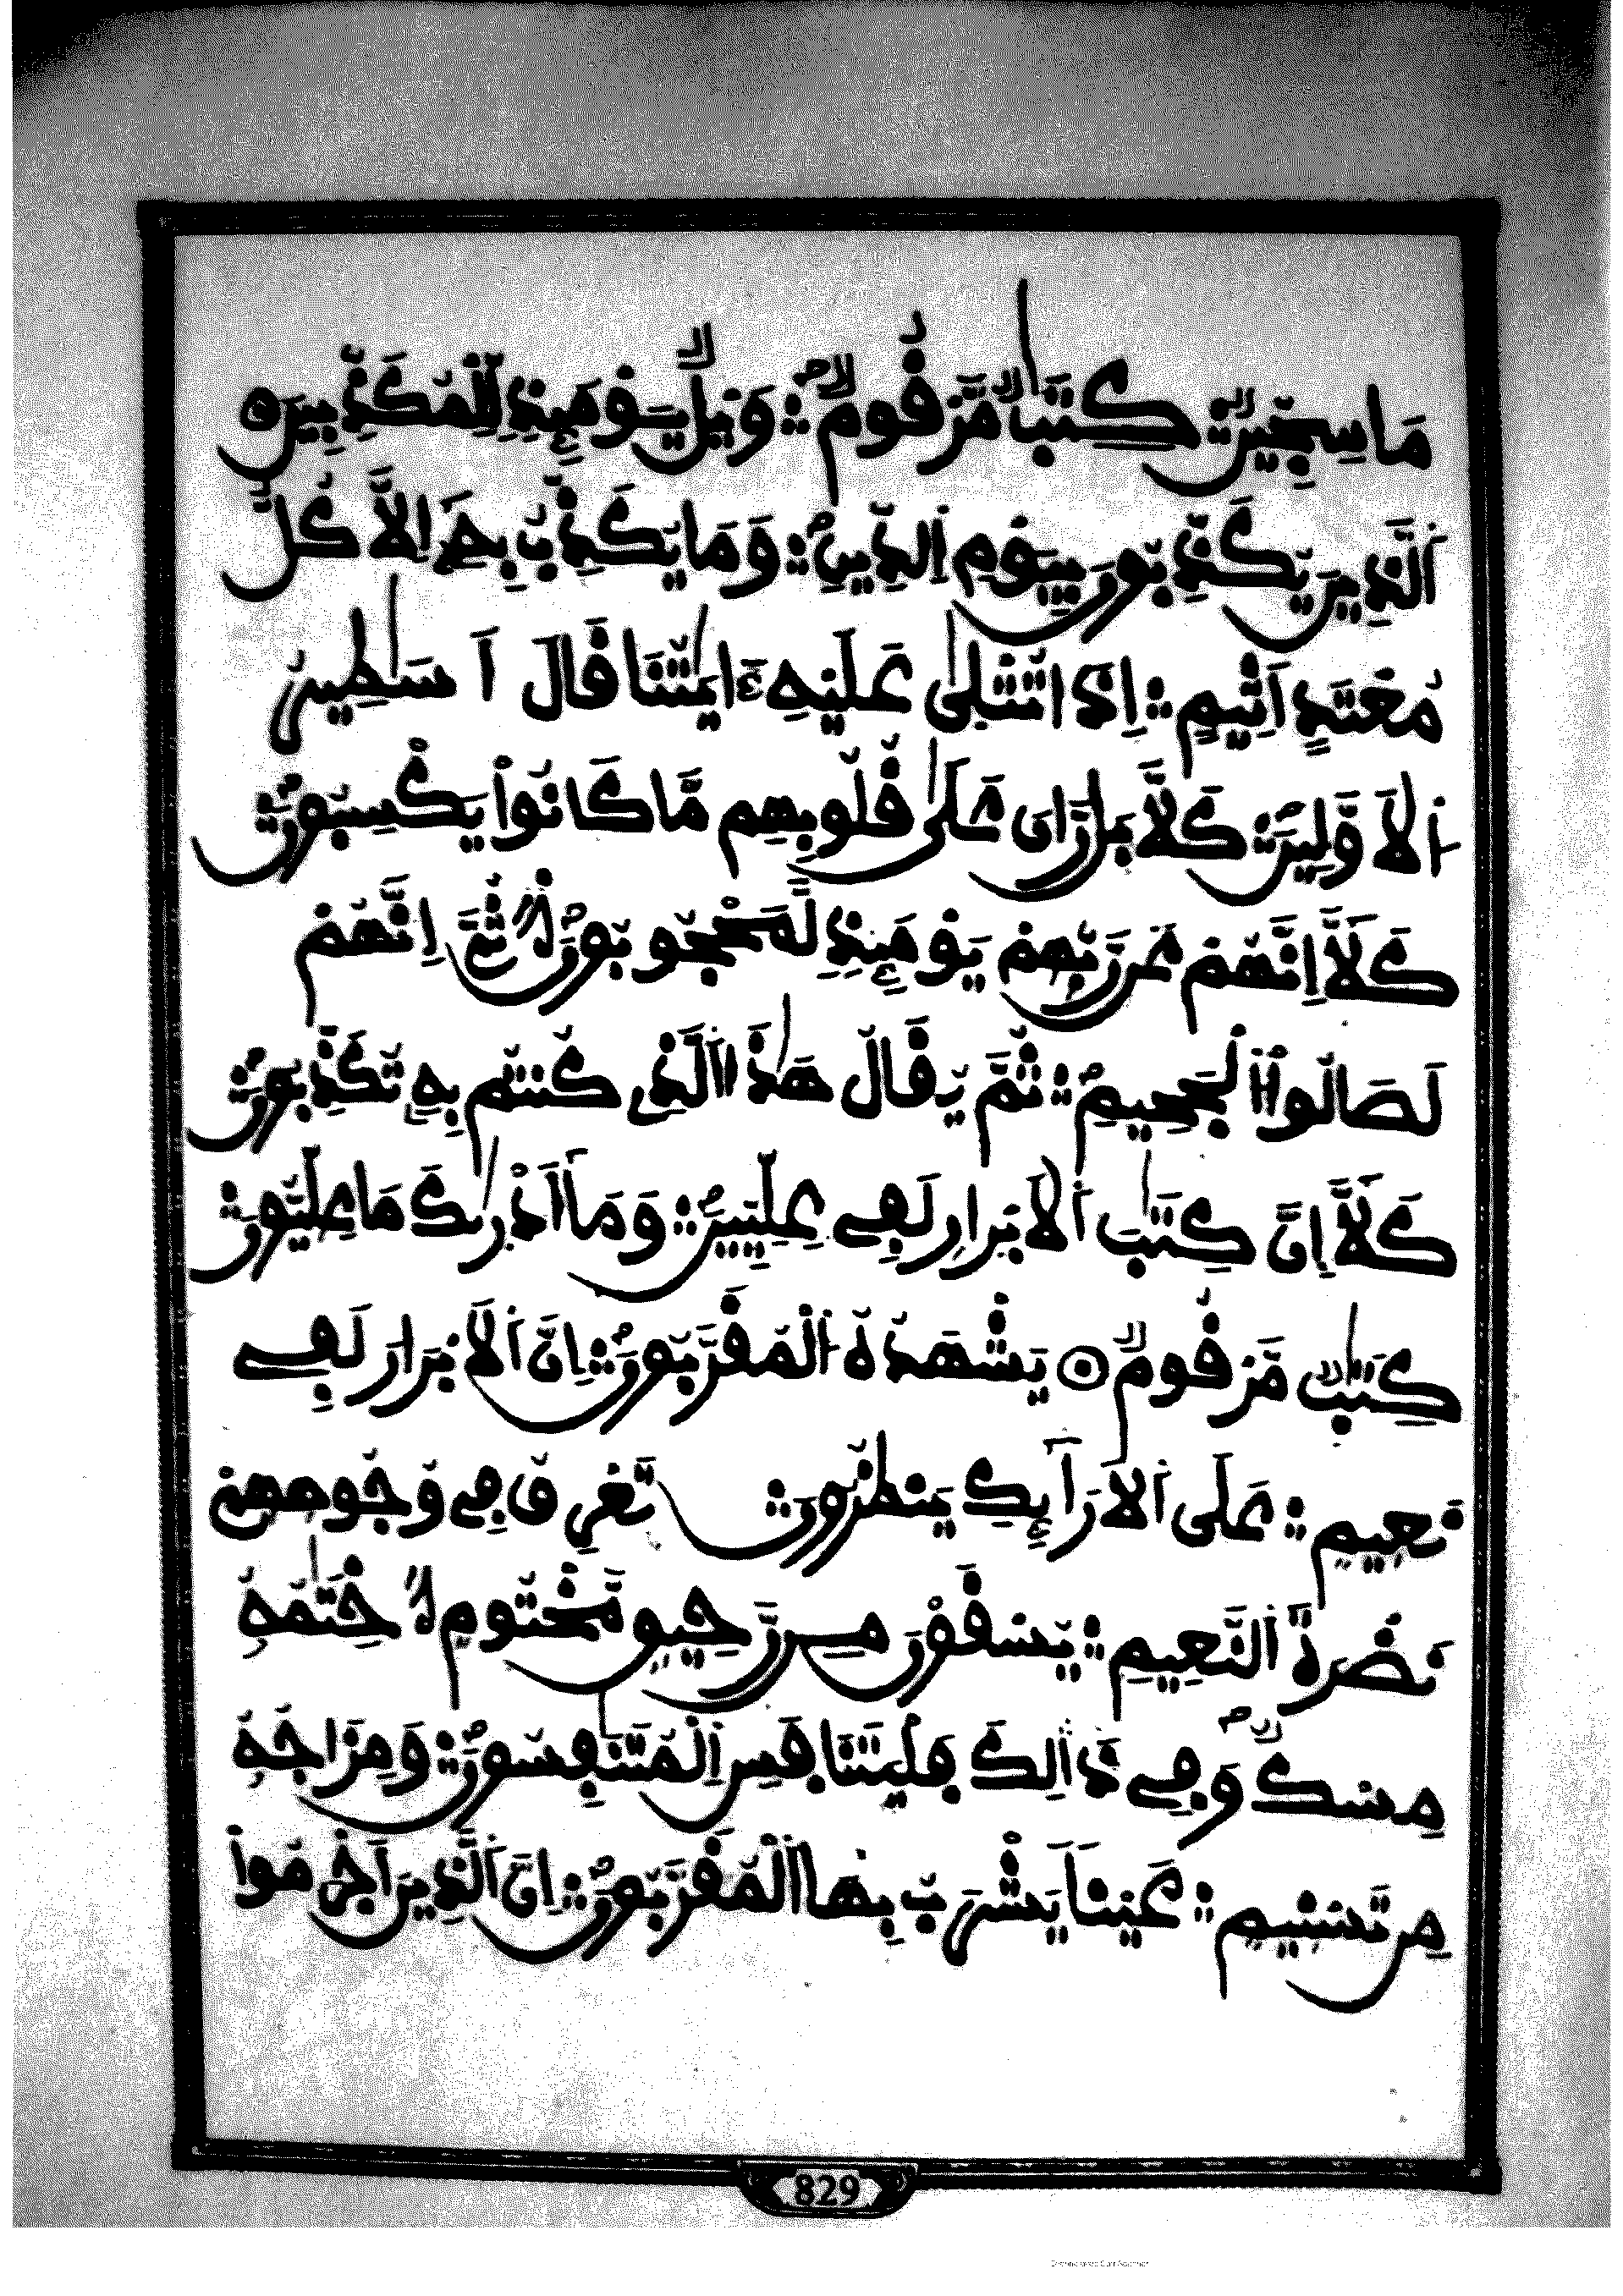 مَا سِجِّينٌ كِتَٰبٌ مَّرْقُومٌ وَيْلٌ يَوْمَئِذٍ لِّلْمُكَذِّبِينَ
ٱلَّذِينَ يُكَذِّبُونَ بِيَوْمِ ٱلدِّينِ وَمَا يُكَذِّبُ بِهِۦ إِلَّا كُلُّ
مُعْتَدٍ أَثِيمٍ إِذَا تُتْلَىٰ عَلَيْهِ ءَايَٰتُنَا قَالَ أَسَٰطِيرُ
ٱلْأَوَّلِينَ كَلَّا بَل رَّانَ عَلَىٰ قُلُوبِهِم مَّا كَانُوا۟ يَكْسِبُونَ
كَلَّا إِنَّهُمْ عَن رَّبِّهِمْ يَوْمَئِذٍ لَّمَحْجُوبُونَ ثُمَّ إِنَّهُمْ
لَصَالُوا۟ ٱلْجَحِيمِ ثُمَّ يُقَالُ هَٰذَا ٱلَّذِى كُنتُم بِهِۦ تُكَذِّبُونَ
كَلَّا إِنَّ كِتَٰبَ ٱلْأَبْرَارِ لَفِى عِلِّيِّينَ وَمَا أَدْرَىٰكَ مَا عِلِّيُّونَ
كِتَٰبٌ مَّرْقُومٌ يَشْهَدُهُ ٱلْمُقَرَّبُونَ إِنَّ ٱلْأَبْرَارَ لَفِى
نَعِيمٍ عَلَى ٱلْأَرَآئِكِ يَنظُرُونَ تَعْرِفُ فِى وُجُوهِهِمْ
نَضْرَةَ ٱلنَّعِيمِ يُسْقَوْنَ مِن رَّحِيقٍ مَّخْتُومٍ خِتَٰمُهُۥ
مِسْكٌ وَفِى ذَالِكَ فَلْيَتَنَافَسِ ٱلْمُتَنَٰفِسُونَ وَمِزَاجُهُۥ
مِن تَسْنِيمٍ عَيْنًا يَشْرَبُ بِهَا ٱلْمُقَرَّبُونَ إِنَّ ٱلَّذِينَ أَجْرَمُوا۟
829